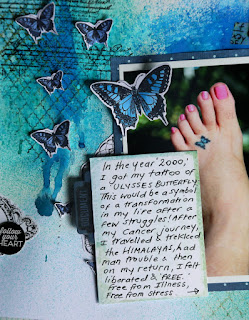 In the year '2000,'
I got my tattoo of
a "ULYSSES BUTTERFLY"
This would be a symbol
of a transformation
in my life after a
few struggles! After
my Cancer journey,
I travelled & trekked
the HIMALAYAS, had
man trouble & then
on my return, I felt
liberated & 'FREE.'
free from Illness,
Free from stress.
follow
your
HEART